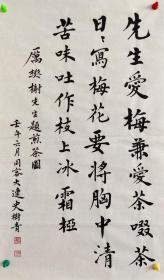 先生愛梅兼愛茶啜茶
日日寫梅花要將胸中清
苦味吐作枝上冰霜椏
厲樊榭先生題煎茶圖
壬午六月同客大連史樹青